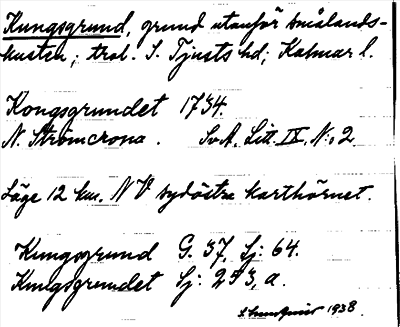 Kungsgrund, grund utanför smålands-
kusten; trol. S. Tjusts hd; Kalmar l.
Kongsgrundet 1734.
N. Strömcrona. SvA. Litt. IX. N:o 2
Läge 12 km. NV sydöstra karthörnet.
Kungsgrund G. 57, Sj: 64.
Kungsgrundet Sj: 253, a.
1938